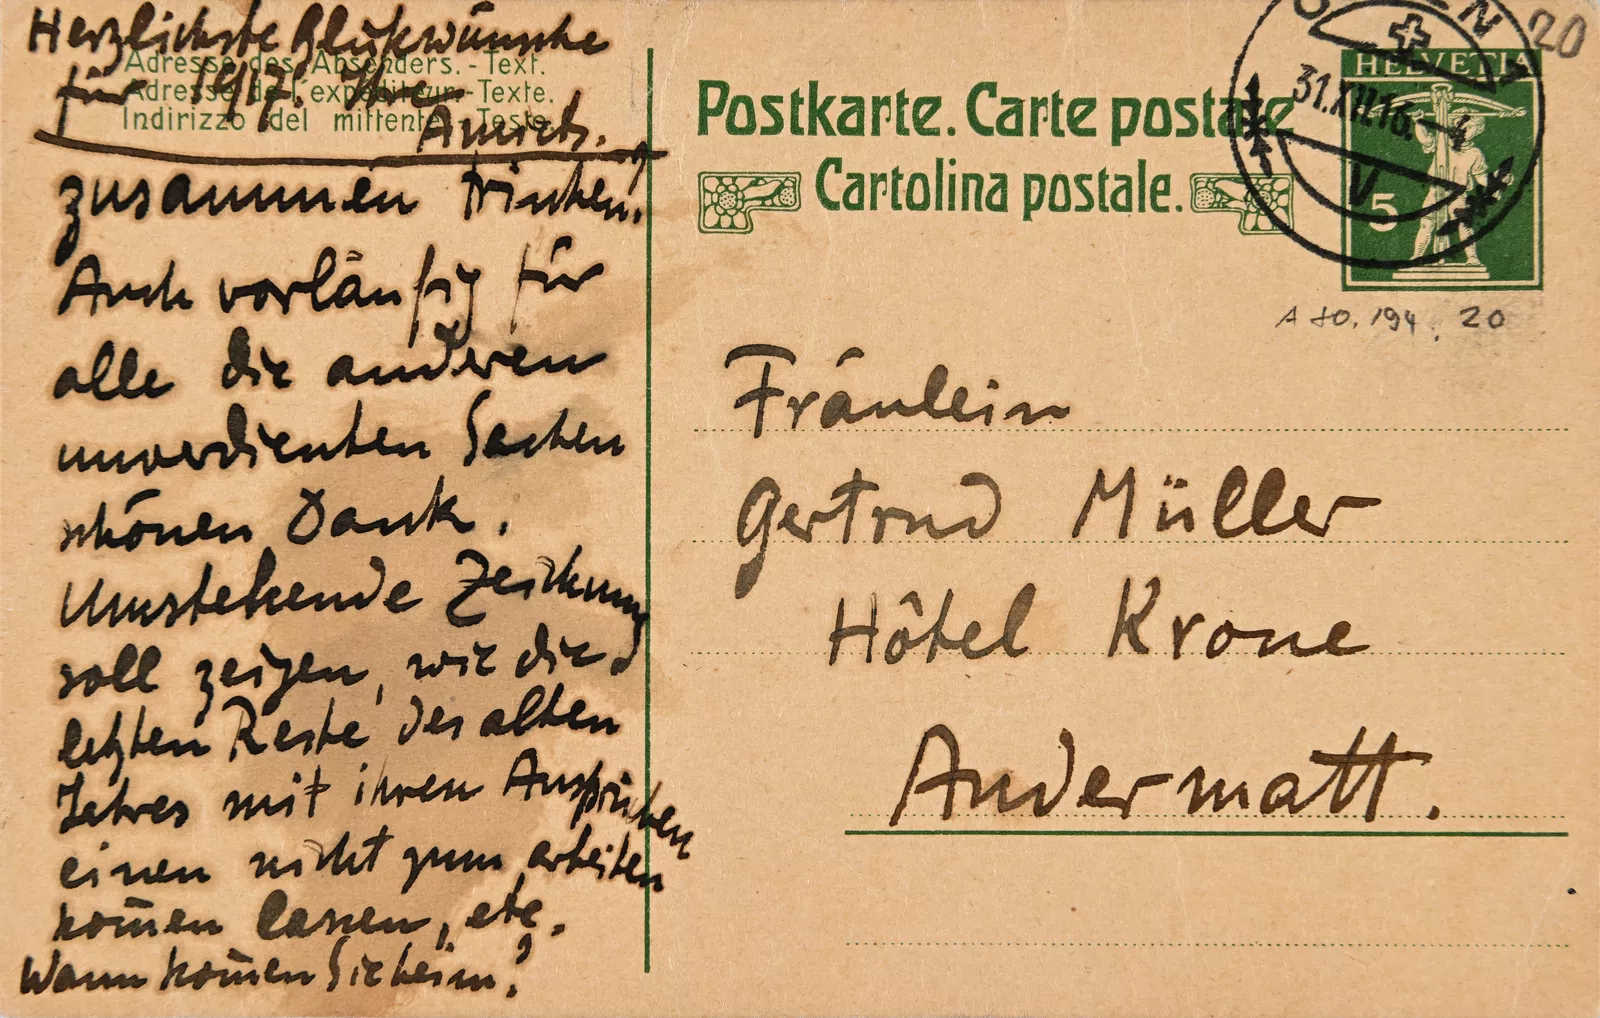 Herzlichste Glükwünsche
für 1917. Ihr
Amiet.
zusammen trinken?
Auch vorläufig für
alle die anderen
unverdienten Sachen
schönen Dank.
Umstehende Zeichnung
soll zeigen, wie die
letzten Reste des alten
Jahres mit ihren Ansprüchen
einen nicht zum arbeiten
kom̅en lassen, etc.
Wann kom̅en Sie heim?
Adresse des Absenders. - Text.
Adresse de l'expéditeur. - Texte.
Indirizzo del mittente. - Testo.
Postkarte. Carte postale
Cartolina postale.
HELVETIA
5
31.XII.16.-4
V
20
A 80. 194. 20
Fräulein
Gertrud Müller
Hôtel Krone
Andermatt.